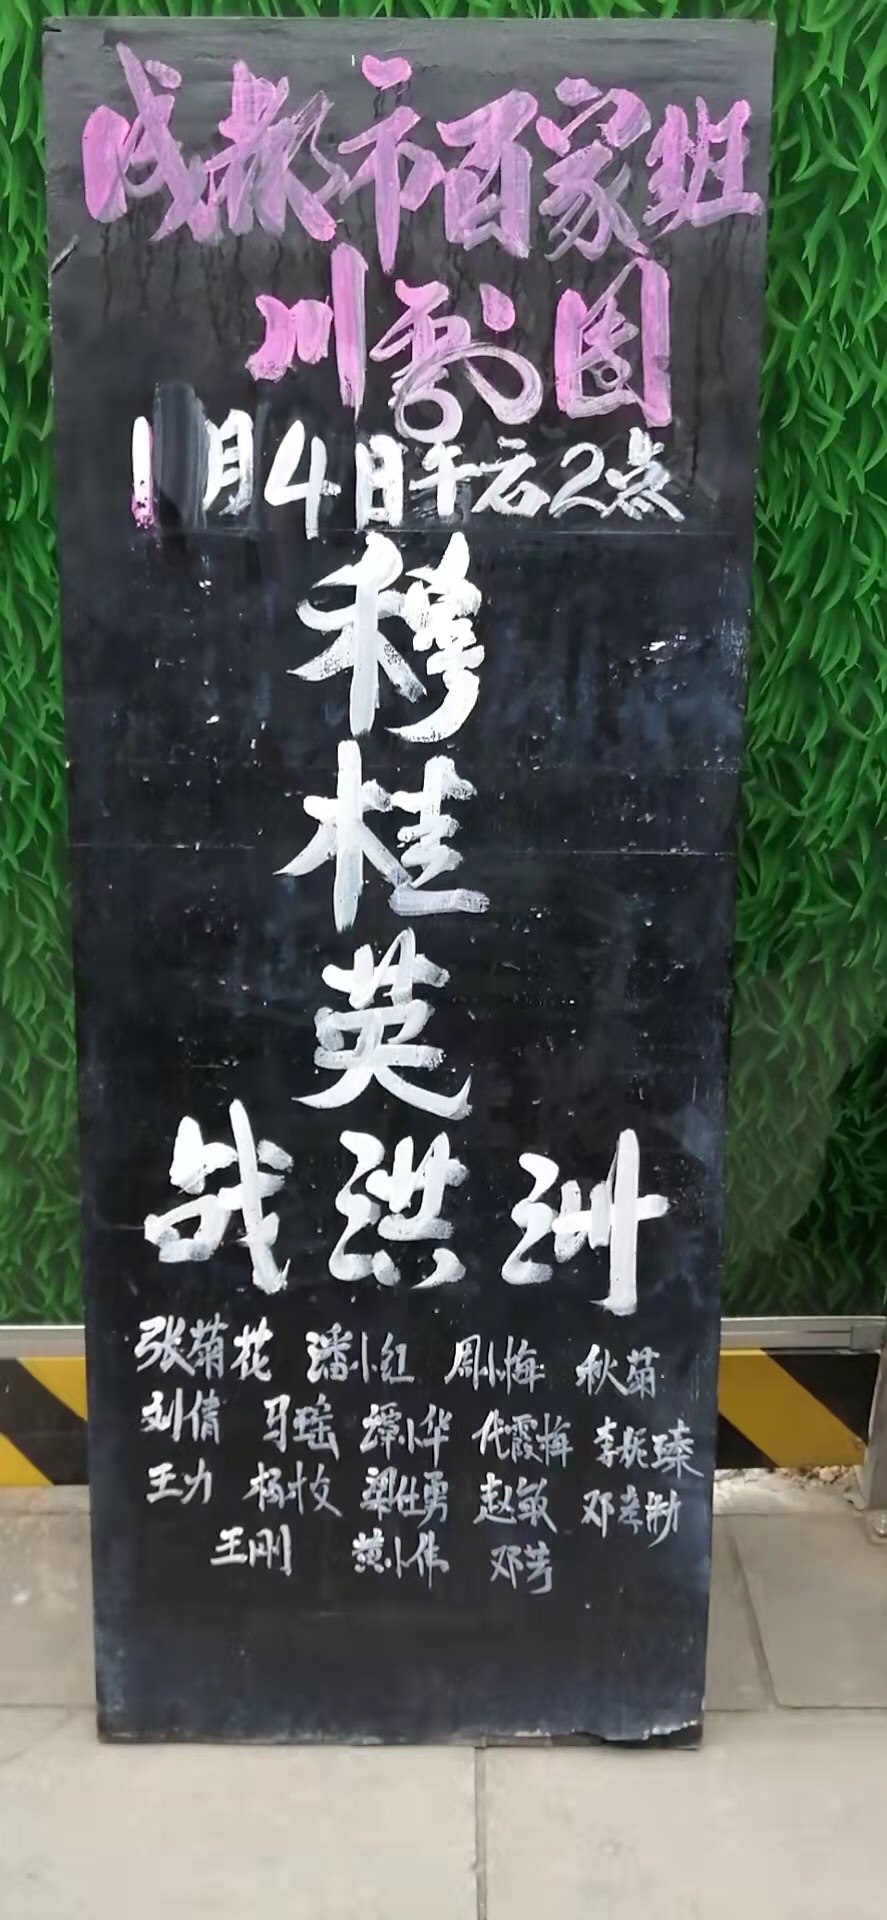 成都市百家班
川剧团
1月4日午后2点
穆
桂
英
战洪洲
张菊花 潘小红 周小梅 秋菊
刘倩 马瑶 谭小华 代霞梅 李妮臻
王力 杨枚 梁仕勇 赵敏 邓孝渐
王刚 黄小伟 邓芳